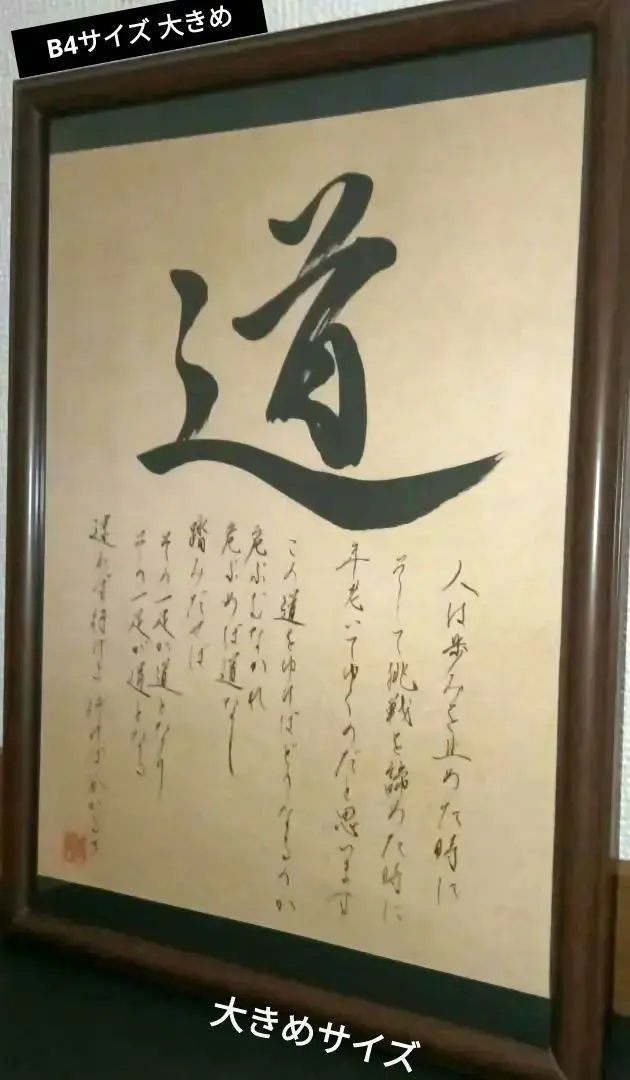 B4サイズ 大きめ
道
人は歩みを止めた時に
そして挑戦を諦めた時に
年老いてゆくのだと思います
この道をゆけばどうなるのか
危ぶむなかれ
危ぶめば道なし
踏みだせば
その一足が道となり
その一足が道となる
迷わず行けよ 行けば分かるさ
大きめサイズ